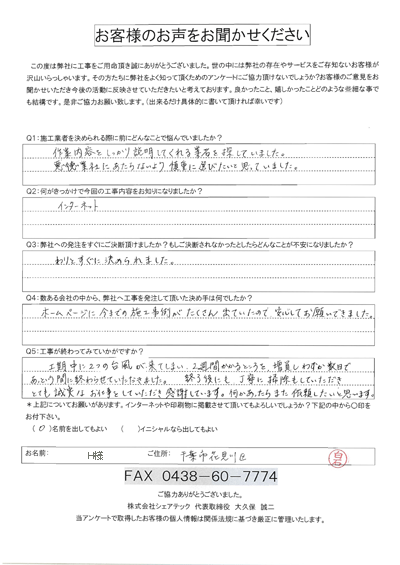 お客様のお声をお聞かせください
この度は弊社に工事をご用命頂き誠にありがとうございました。世の中には弊社の存在やサービスをご存知ないお客様が
沢山いらっしゃいます。その方たちに弊社をよく知って頂くためのアンケートにご協力頂けないでしょうか?お客様のご意見をお
聞かせいただき今後の活動に反映させていただきたいと考えております。良かったこと、嬉しかったことどのような些細な事で
も結構です。是非ご協力お願い致します。(出来るだけ具体的に書いて頂ければ幸いです)
Q1:施工業者を決められる際に前にどんなことで悩んでいましたか?
作業内容をしっかり説明してくれる業者を探していました。
悪徳業社にあたらないよう慎重に選びたいと思っていました。
Q2:何がきっかけで今回の工事内容をお知りになりましたか?
インターネット
Q3:弊社への発注をすぐにご決断頂けましたか?もしご決断されなかったとしたらどんなことが不安になりましたか?
わりとすぐに決められました。
Q4:数ある会社の中から、弊社へ工事を発注して頂いた決め手は何でしたか?
ホームページに今までの施工事例がたくさん出ていたので安心してお願いできました。
Q5:工事が終わってみていかがですか?
工期中に2つの台風が来てしまい、2週間かかるところを、増員しわずか数日で
あっという間に終わらせていただきました。終了後にも丁寧に掃除もしていただき
とても誠実なお仕事をしていただき感謝しています。何かあったらまた依頼したいと思います。
*上記についてお願いがあります。インターネットや印刷物に掲載させて頂いてもよろしいでしょうか?下記の中から〇印を
お付下さい。
(〇)名前を出してもよい ( )イニシャルなら出してもよい
お名前: H様 ご住所: 千葉市花見川区
FAX 0438-60-7774
ご協力ありがとうございました。
株式会社シェアテック 代表取締役 大久保 誠二
当アンケートで取得したお客様の個人情報は関係法規に基づき厳正に管理いたします。